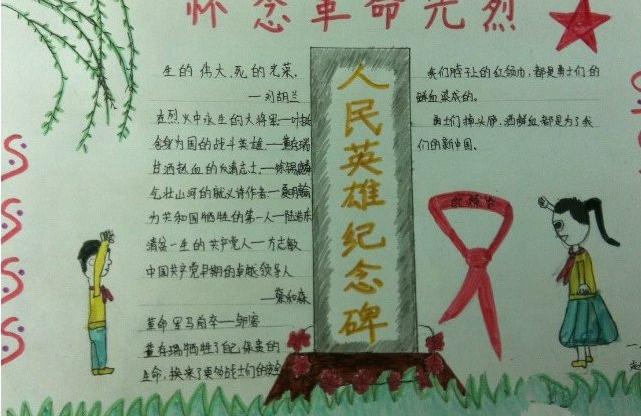 怀念革命先烈
生的伟大,死的光荣。
—刘胡兰
在烈火中永生的大将军—叶挺
舍身为国的战斗英雄—董存瑞
甘洒热血的
气壮山河的就义诗作者—夏明翰
为共和国牺牲的第一人—
清贫一生的共产党人—方志敏
中国共产党早期的卓越领导人
—蔡和森
革命军马前卒—邹容
董存瑞牺牲了自己保贵的
生命,换来了更多战士们的
人民英雄纪念碑
我们脖子上的红领巾,都是勇士们的
鲜血染成的。
勇士们掉头颅,洒鲜血都是为了我
们的新中国。
红领巾